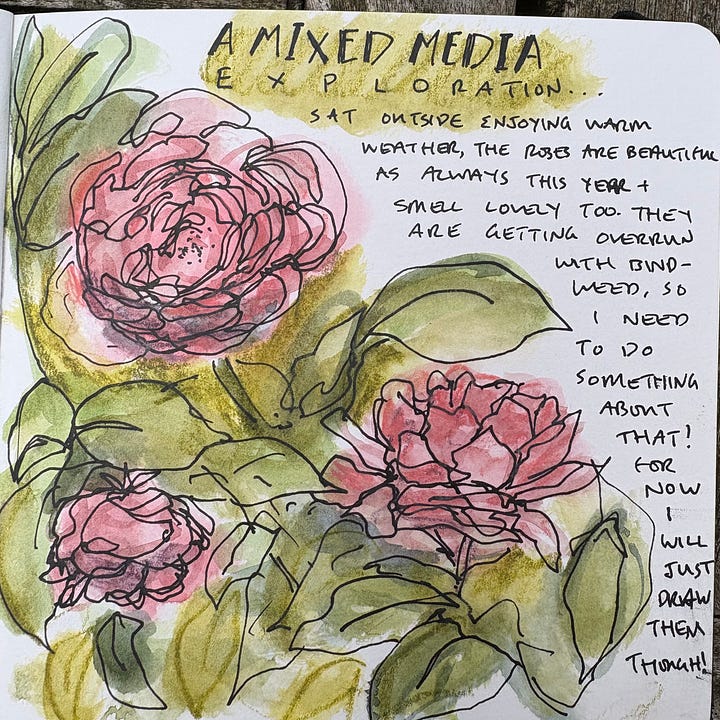 A MIXED MEDIA
EXPLORATION...
SAT OUTSIDE ENJOYING WARM
WEATHER, THE ROSES ARE BEAUTIFUL
AS ALWAYS THIS YEAR +
SMELL LOVELY TOO. THEY
ARE GETTING OVERRUN
WITH BIND-
WEED, SO
I NEED
TO DO
SOMETHING
ABOUT
THAT!
FOR
NOW
I
WILL
JUST
DRAW
THEM
THOUGH!